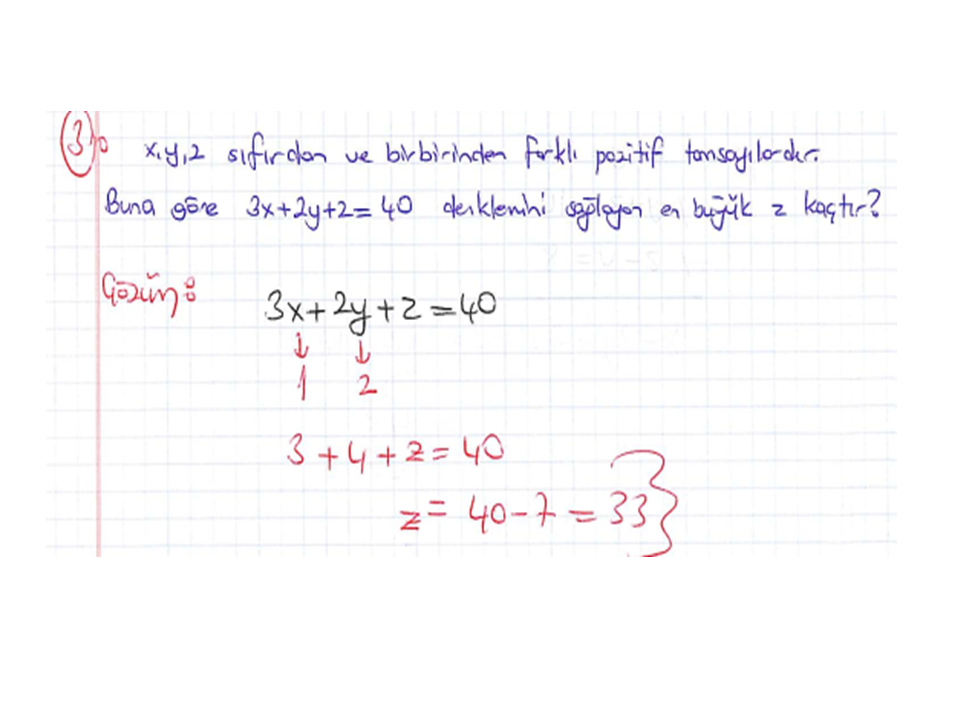 3) x,y,z sıfırdan ve birbirinden farklı pozitif tamsayılardır.
Buna göre 3x+2y+z=40 denklemini sağlayan en büyük z kaçtır?
Çözüm:
3x+2y+z=40
↓ ↓
1 2
3+4+z=40
z=40-7=33